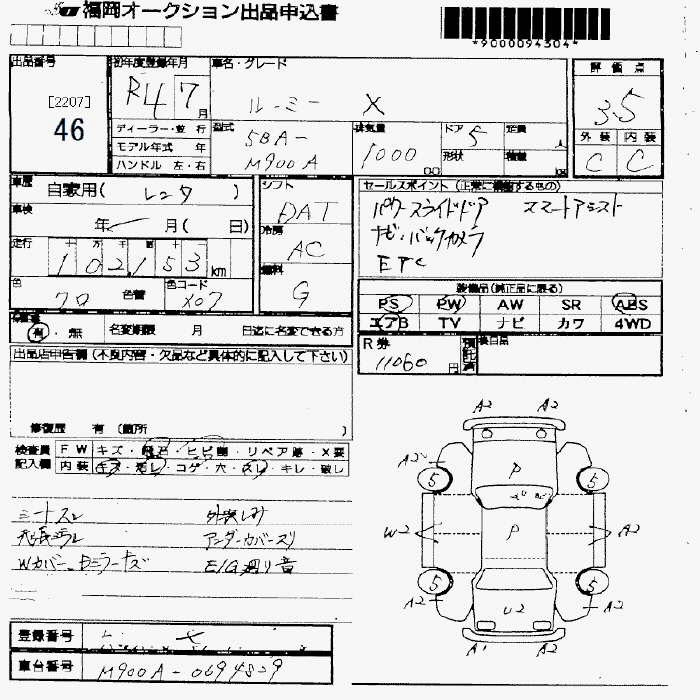 福岡オークション出品申込書
*9000094304*
出品番号
[2207]
46
初年度登録年月
R4 7 月
車名・グレード
ルーミー X
評価点
3.5
外装 内装
C C
ディーラー・並行
モデル年式 年
ハンドル 左・右
型式
5BA-
M900A
排気量
1000
cc
ドア
5
形状
定員
人
積載
車歴
自家用( レンタ )
車検
年 月( 日)
走行
十 万 千 百 十
102,153 km
色
クロ
色替
色コード
X07
シフト
DAT
冷房
AC
燃料
G
セールスポイント (正常に機能するもの)
パワースライドドア スマートアシスト
ナビ・バックカメラ
ETC
装備品(純正品に限る)
PS PW AW SR ABS
エアB TV ナビ カワ 4WD
有・無 名変期限 月 日迄に名変できる方
R券
11060 円
預託済
後日品
出品店申告欄 (不良内容・欠品など具体的に記入して下さい)
修復歴 有 (箇所 )
検査員
記入欄
FW キズ・飛石・ヒビ割・リペア跡・X要
内装 キズ・汚レ・コゲ・穴・スレ・キレ・破し
シートスレ 外装しみ
アンダーカバースリ
Wカバー E/G廻り音
登録番号
車台番号
M900A-0694829
A2 A2
A2
5 P 5
W2 P A2
5 5
A2 U2 A2
A1 A2